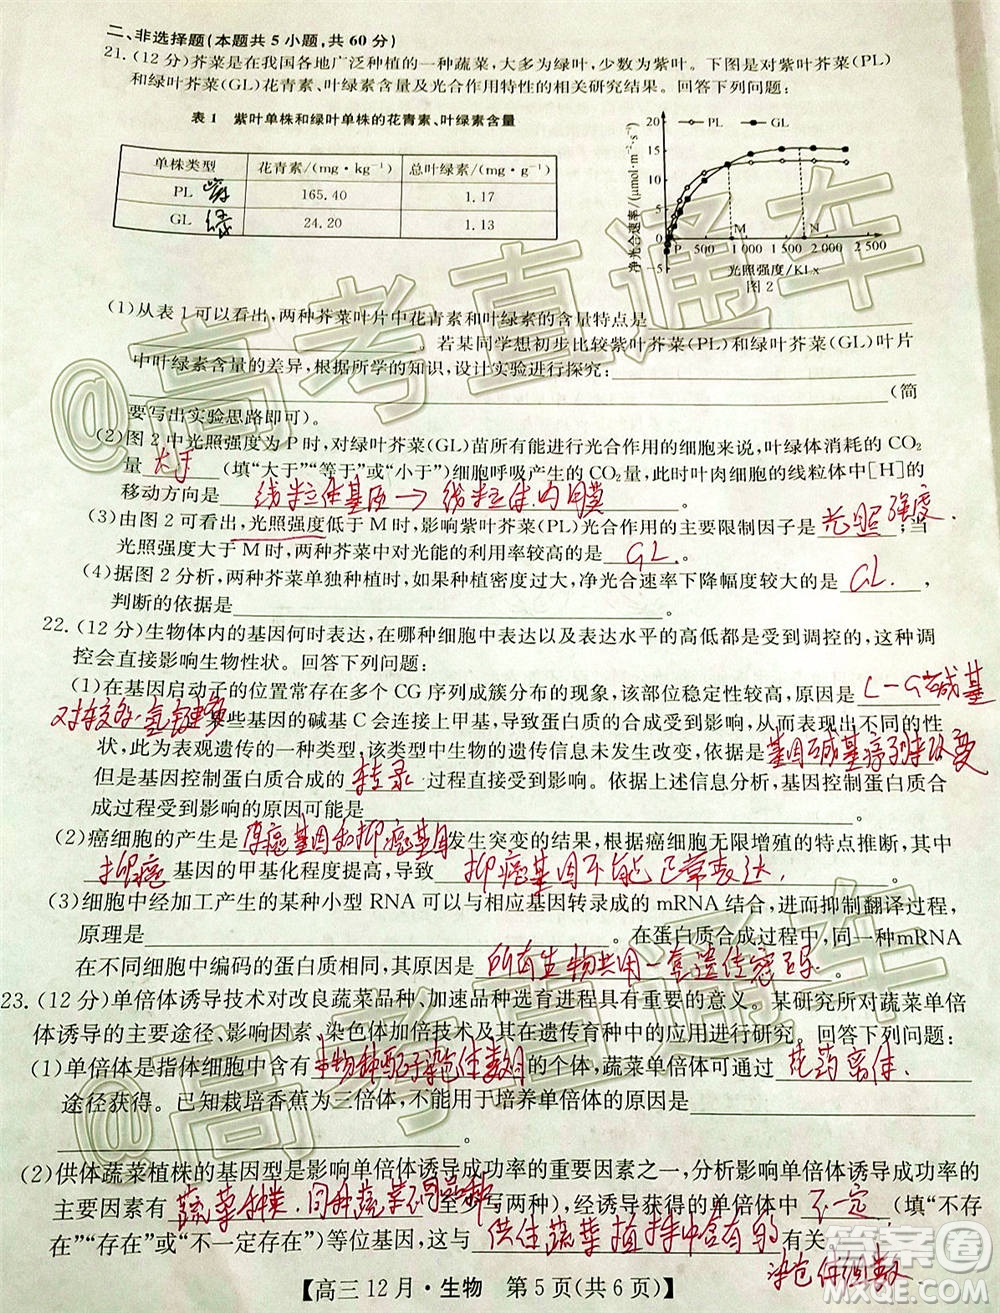 二、非选择题(本题共5小题,共60分)
21.(12分)芥菜是在我国各地广泛种植的一种蔬菜,大多为绿叶,少数为紫叶。下图是对紫叶芥菜(PL)
和绿叶芥菜(GL)花青素、叶绿素含量及光合作用特性的相关研究结果。回答下列问题:
表1 紫叶单株和绿叶单株的花青素、叶绿素含量
单株类型 花青素/(mg·kg⁻¹) 总叶绿素/(mg·g⁻¹)
PL 紫 165.40 1.17
GL 绿 24.20 1.13
PL GL
20
15
10
5
0
-5
净光合速率/(μmol·m⁻²·s⁻¹)
P 500 M 1 000 1 500 N 2 000 2 500
光照强度/KLx
图2
(1)从表1可以看出,两种芥菜叶片中花青素和叶绿素的含量特点是
。若某同学想初步比较紫叶芥菜(PL)和绿叶芥菜(GL)叶片
中叶绿素含量的差异,根据所学的知识,设计实验进行探究:
(简
要写出实验思路即可)。
(2)图2中光照强度为P时,对绿叶芥菜(GL)苗所有能进行光合作用的细胞来说,叶绿体消耗的CO₂
量 大于 (填“大于”“等于”或“小于”)细胞呼吸产生的CO₂量,此时叶肉细胞的线粒体中[H]的
移动方向是 线粒体基质→线粒体内膜 。
(3)由图2可看出,光照强度低于M时,影响紫叶芥菜(PL)光合作用的主要限制因子是 光照强度 ;当
光照强度大于M时,两种芥菜中对光能的利用率较高的是 GL 。
(4)据图2分析,两种芥菜单独种植时,如果种植密度过大,净光合速率下降幅度较大的是 GL ,
判断的依据是 。
22.(12分)生物体内的基因何时表达,在哪种细胞中表达以及表达水平的高低都受到调控的,这种调
控会直接影响生物性状。回答下列问题:
(1)在基因启动子的位置常存在多个CG序列成簇分布的现象,该部位稳定性较高,原因是 C-G碱基
对较多,氢键多 某些基因的碱基C会连接上甲基,导致蛋白质的合成受到影响,从而表现出不同的性
状,此为表观遗传的一种类型,该类型中生物的遗传信息未发生改变,依据是 基因碱基序列未改变
但是基因控制蛋白质合成的 转录 过程直接受到影响。依据上述信息分析,基因控制蛋白质合
成过程受到影响的原因可能是 。
(2)癌细胞的产生是 原癌基因和抑癌基因 发生突变的结果,根据癌细胞无限增殖的特点推断,其中
抑癌 基因的甲基化程度提高,导致 抑癌基因不能正常表达 。
(3)细胞中经加工产生的某种小型RNA可以与相应基因转录成的mRNA结合,进而抑制翻译过程,
原理是 。在蛋白质合成过程中,同一种mRNA
在不同细胞中编码的蛋白质相同,原因是 所有生物共用一套遗传密码 。
23.(12分)单倍体诱导技术对改良蔬菜品种、加速品种选育进程具有重要的意义。某研究所对蔬菜单倍
体诱导的主要途径、影响因素、染色体加倍技术及其在遗传育种中的应用进行研究。回答下列问题:
(1)单倍体是指体细胞中含有 本物种配子染色体数目 的个体,蔬菜单倍体可通过 花药离体
途径获得。已知栽培香蕉为三倍体,不能用于培养单倍体的原因是
。
(2)供体蔬菜植株的基因型是影响单倍体诱导成功率的重要因素之一,分析影响单倍体诱导成功率的
主要因素有 蔬菜种类,同种蔬菜不同品种 (至少写两种),经诱导获得的单倍体中 不一定 (填“不存
在”“存在”或“不一定存在”)等位基因,这与 供体蔬菜植株中含有的 有关。
染色体组数
【高三12月·生物 第5页(共6页)】
@高考直通车
@高考直通车
答案圈